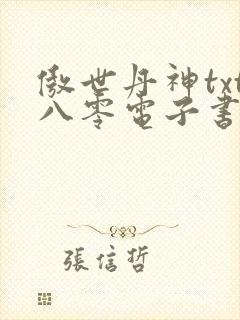 傲世丹神txt
八零電子書
張信哲